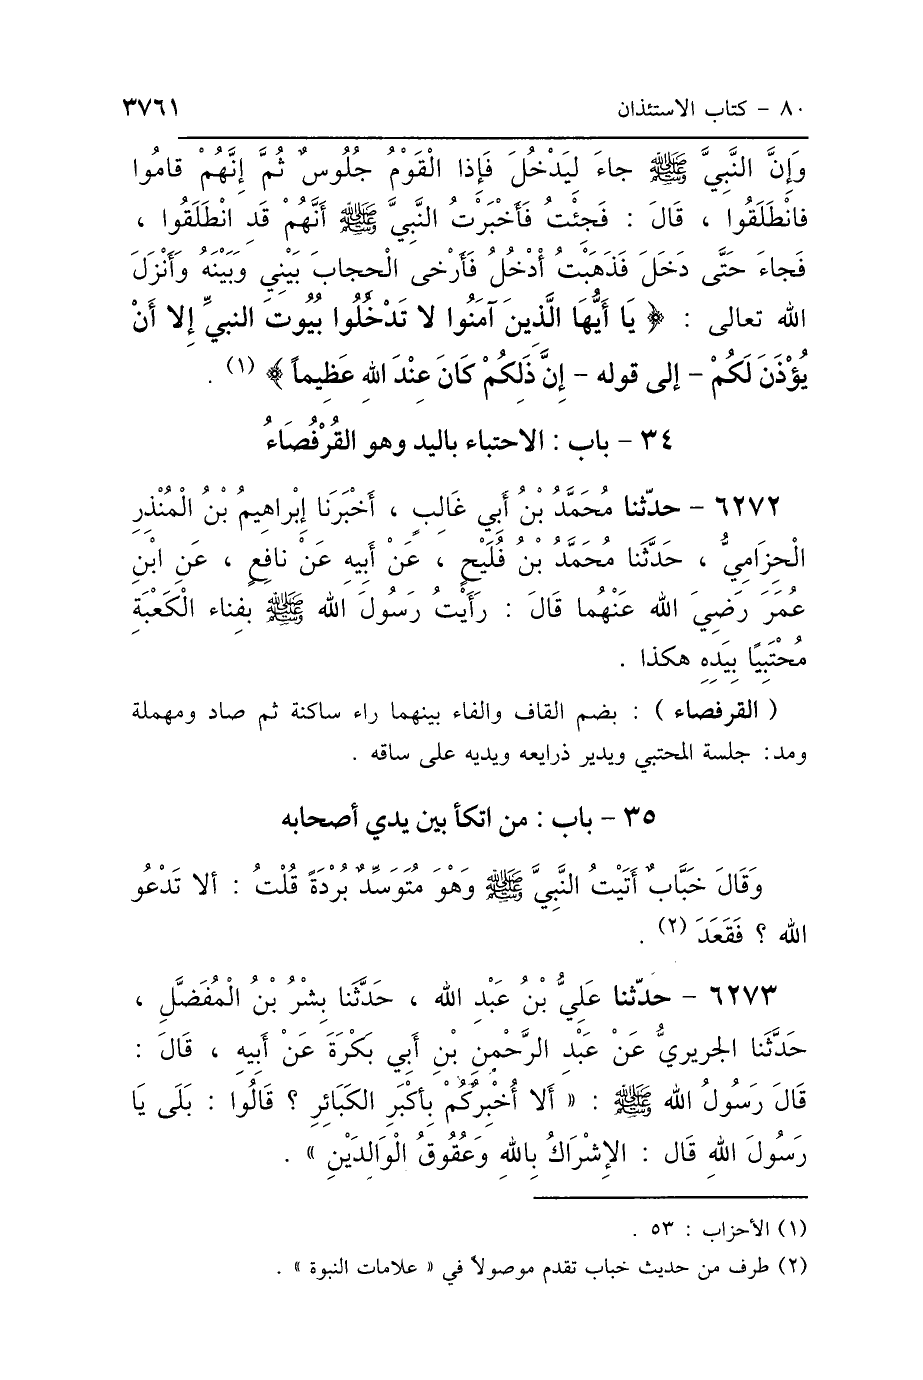 ٨٠ - كتاب الاستئذان ٣٧٦١
وَإِنَّ النَّبِيَّ ﷺ جاءَ لِيَدْخُلَ فَإِذا الْقَوْمُ جُلُوسٌ ثُمَّ إِنَّهُمْ قامُوا
فانْطَلَقُوا ، قَالَ : فَجِئْتُ فَأَخْبَرْتُ النَّبِيَّ ﷺ أَنَّهُمْ قَدِ انْطَلَقُوا ،
فَجاءَ حَتَّى دَخَلَ فَذَهَبْتُ أَدْخُلُ فَأَرْخى الْحِجابَ بَيْنِي وَبَيْنَهُ وَأَنْزَلَ
الله تعالى : ﴿ يَا أَيُّهَا الَّذِينَ آمَنُوا لا تَدْخُلُوا بُيُوتَ النبيِّ إلا أَنْ
يُؤْذَنَ لَكُمْ - إلى قوله - إِنَّ ذَلِكُمْ كَانَ عِنْدَ اللهِ عَظِيماً ﴾ (١) .
٣٤ - باب : الاحتباء باليد وهو القُرْفُصَاءُ
٦٢٧٢ - حدّثنا مُحَمَّدُ بْنُ أَبِي غَالِبٍ ، أَخْبَرَنا إِبْراهِيمُ بْنُ الْمُنْذِرِ
الْحِزَامِيُّ ، حَدَّثَنا مُحَمَّدُ بْنُ فُلَيْحٍ ، عَنْ أَبِيهِ عَنْ نافِعٍ ، عَنِ ابْنِ
عُمَرَ رَضِيَ الله عَنْهُما قَالَ : رَأَيْتُ رَسُولَ الله ﷺ بِفِناء الْكَعْبَةِ
مُحْتَبِيًا بِيَدِهِ هكذا .
( القرفصاء ) : بضم القاف والفاء بينهما راء ساكنة ثم صاد ومهملة
ومد: جلسة المحتبي ويدير ذرايعه ويديه على ساقه .
٣٥ - باب : من اتكأ بين يدي أصحابه
وَقَالَ خَبَّابٌ أَتَيْتُ النَّبِيَّ ﷺ وَهْوَ مُتَوَسِّدٌ بُرْدَةً قُلْتُ : ألا تَدْعُو
الله ؟ فَقَعَدَ (٢) .
٦٢٧٣ - حدّثنا عَلِيُّ بْنُ عَبْدِ الله ، حَدَّثَنا بِشْرُ بْنُ الْمُفَضَّلِ ،
حَدَّثَنا الجريريُّ عَنْ عَبْدِ الرَّحْمنِ بْنِ أَبِي بَكْرَةَ عَنْ أَبِيهِ ، قَالَ :
قَالَ رَسُولُ الله ﷺ : « أَلا أُخْبِرُكُمْ بِأكْبَرِ الكَبَائِرِ ؟ قَالُوا : بَلَى يَا
رَسُولَ اللهِ قَال : الإِشْرَاكُ بِاللهِ وَعُقُوقُ الْوَالِدَيْنِ » .
(١) الأحزاب : ٥٣ .
(٢) طرف من حديث خباب تقدم موصولاً في « علامات النبوة » .